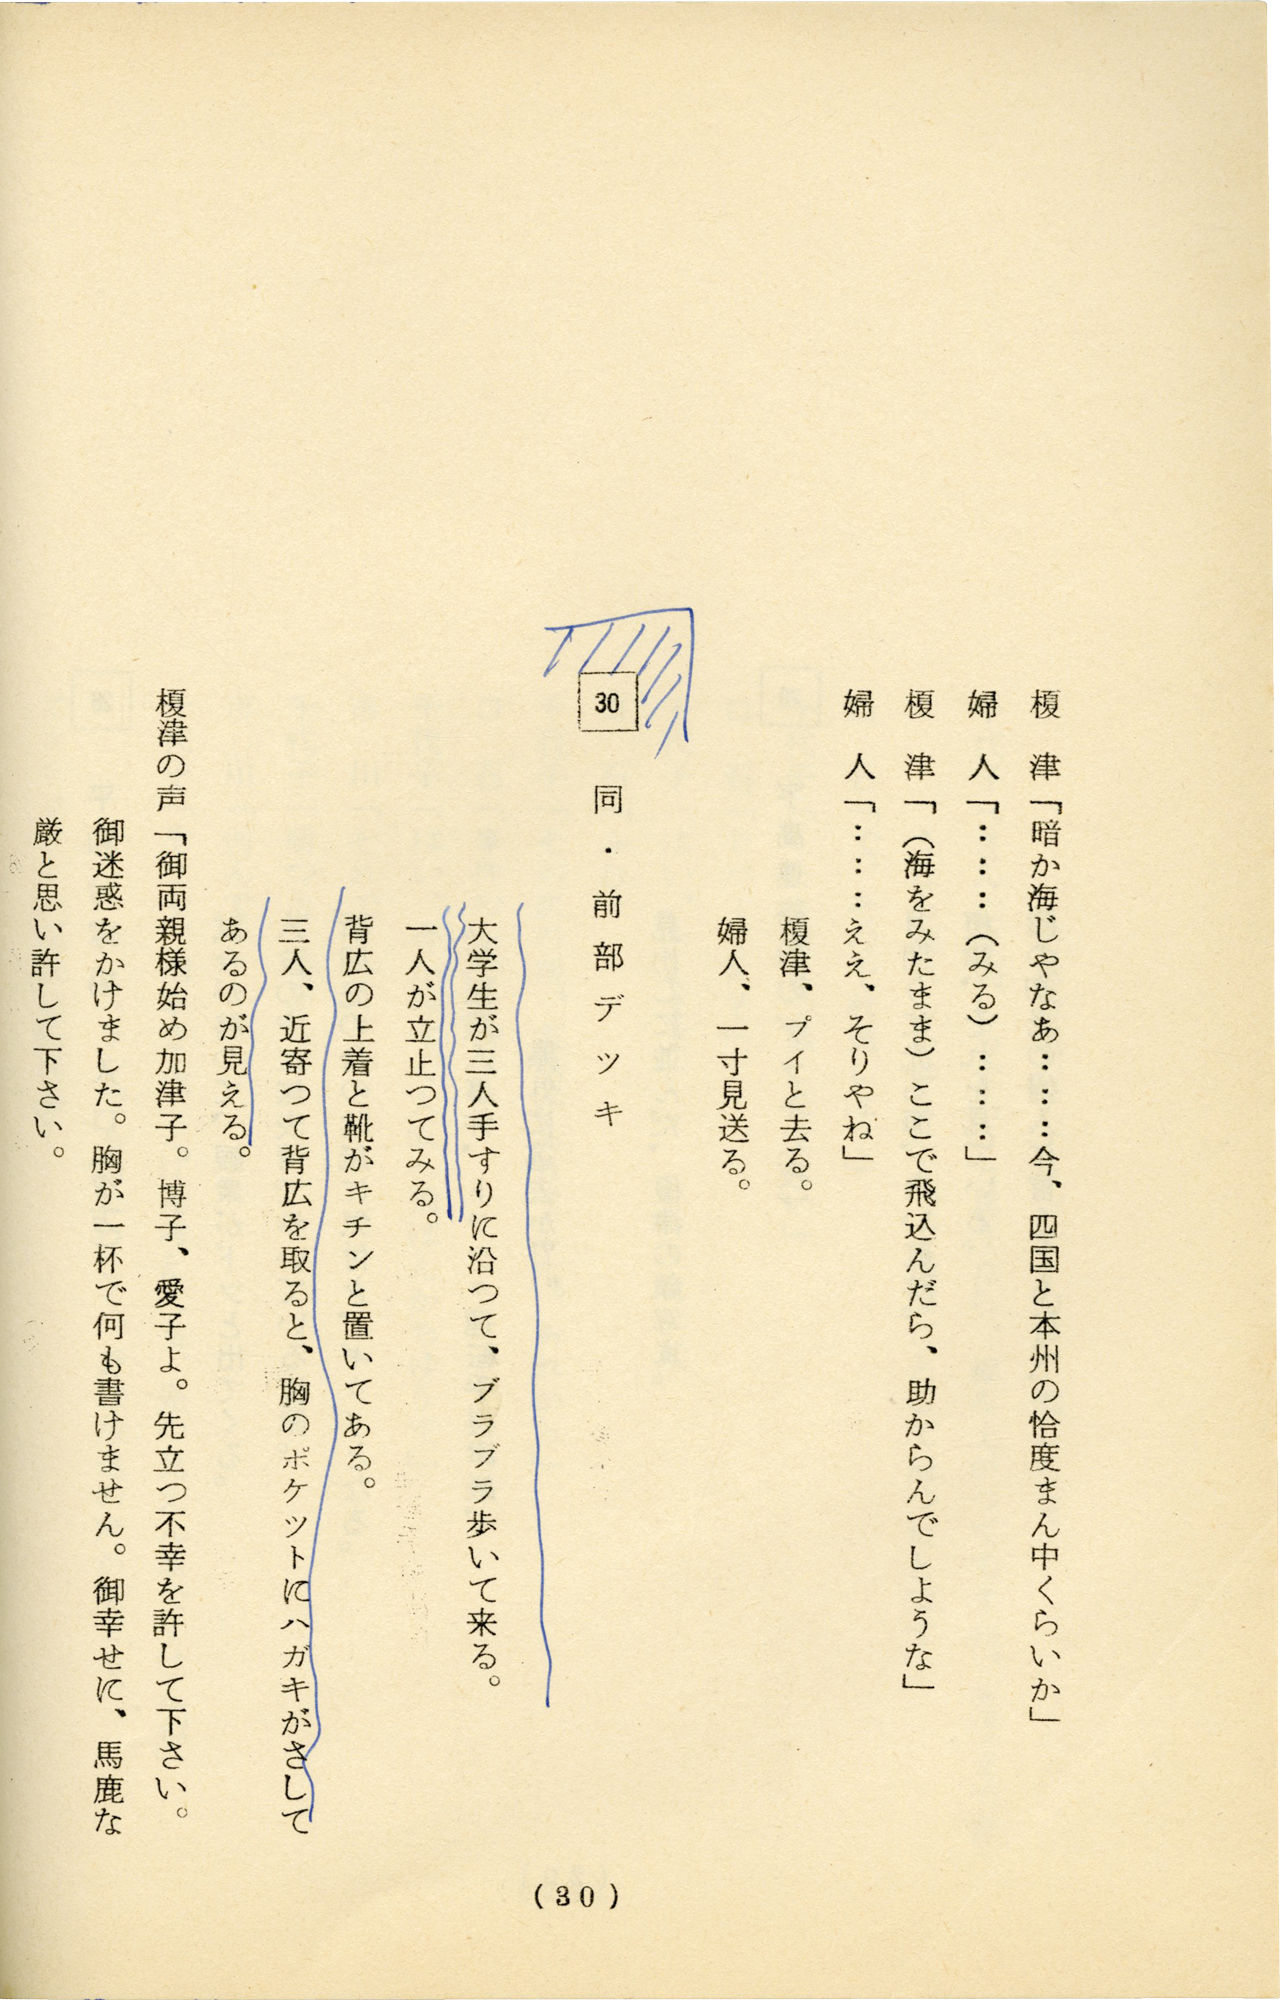 榎　津「暗か海じやなあ………今、四国と本州の恰度まん中くらいか」
婦　人「………（みる）………」
榎　津「（海をみたまま）ここで飛込んだら、助からんでしような」
婦　人「………ええ、そりやね」
榎津、プイと去る。
婦人、一寸見送る。
30　同・前部デツキ
大学生が三人手すりに沿つて、ブラブラ歩いて来る。
一人が立止つてみる。
背広の上着と靴がキチンと置いてある。
三人、近寄つて背広を取ると、胸のポケツトにハガキがさして
あるのが見える。
榎津の声「御両親様始め加津子。博子、愛子よ。先立つ不幸を許して下さい。
御迷惑をかけました。胸が一杯で何も書けません。御幸せに、馬鹿な
厳と思い許して下さい。
(30)